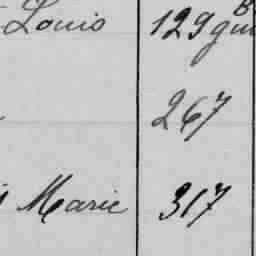 Louis 129
267
Marie 317